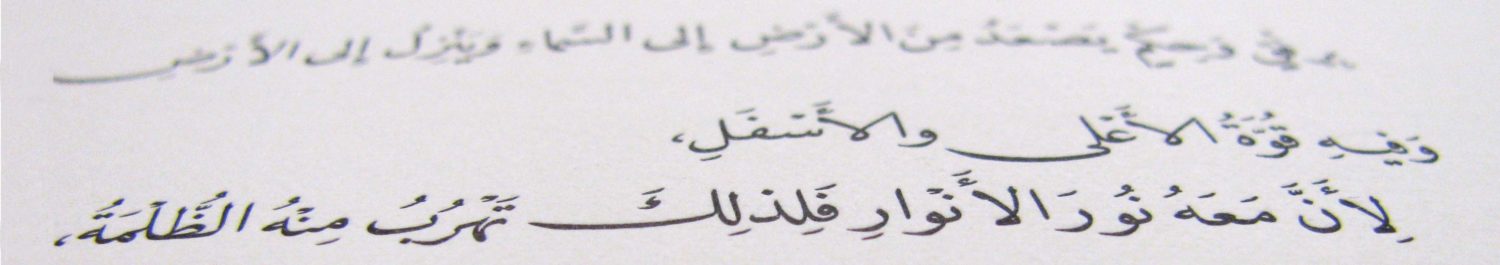 يَصْعَدُ مِنَ الأَرْضِ إلى السَّماءِ وَيَنْزِلُ إلى الأَرْضِ
وَفِيهِ قُوَّةُ الأَعْلى والأَسْفَلِ،
لِأَنَّ مَعَهُ نُورَ الأَنْوارِ فَلِذلِكَ تَهْرُبُ مِنْهُ الظُّلْمَةُ،